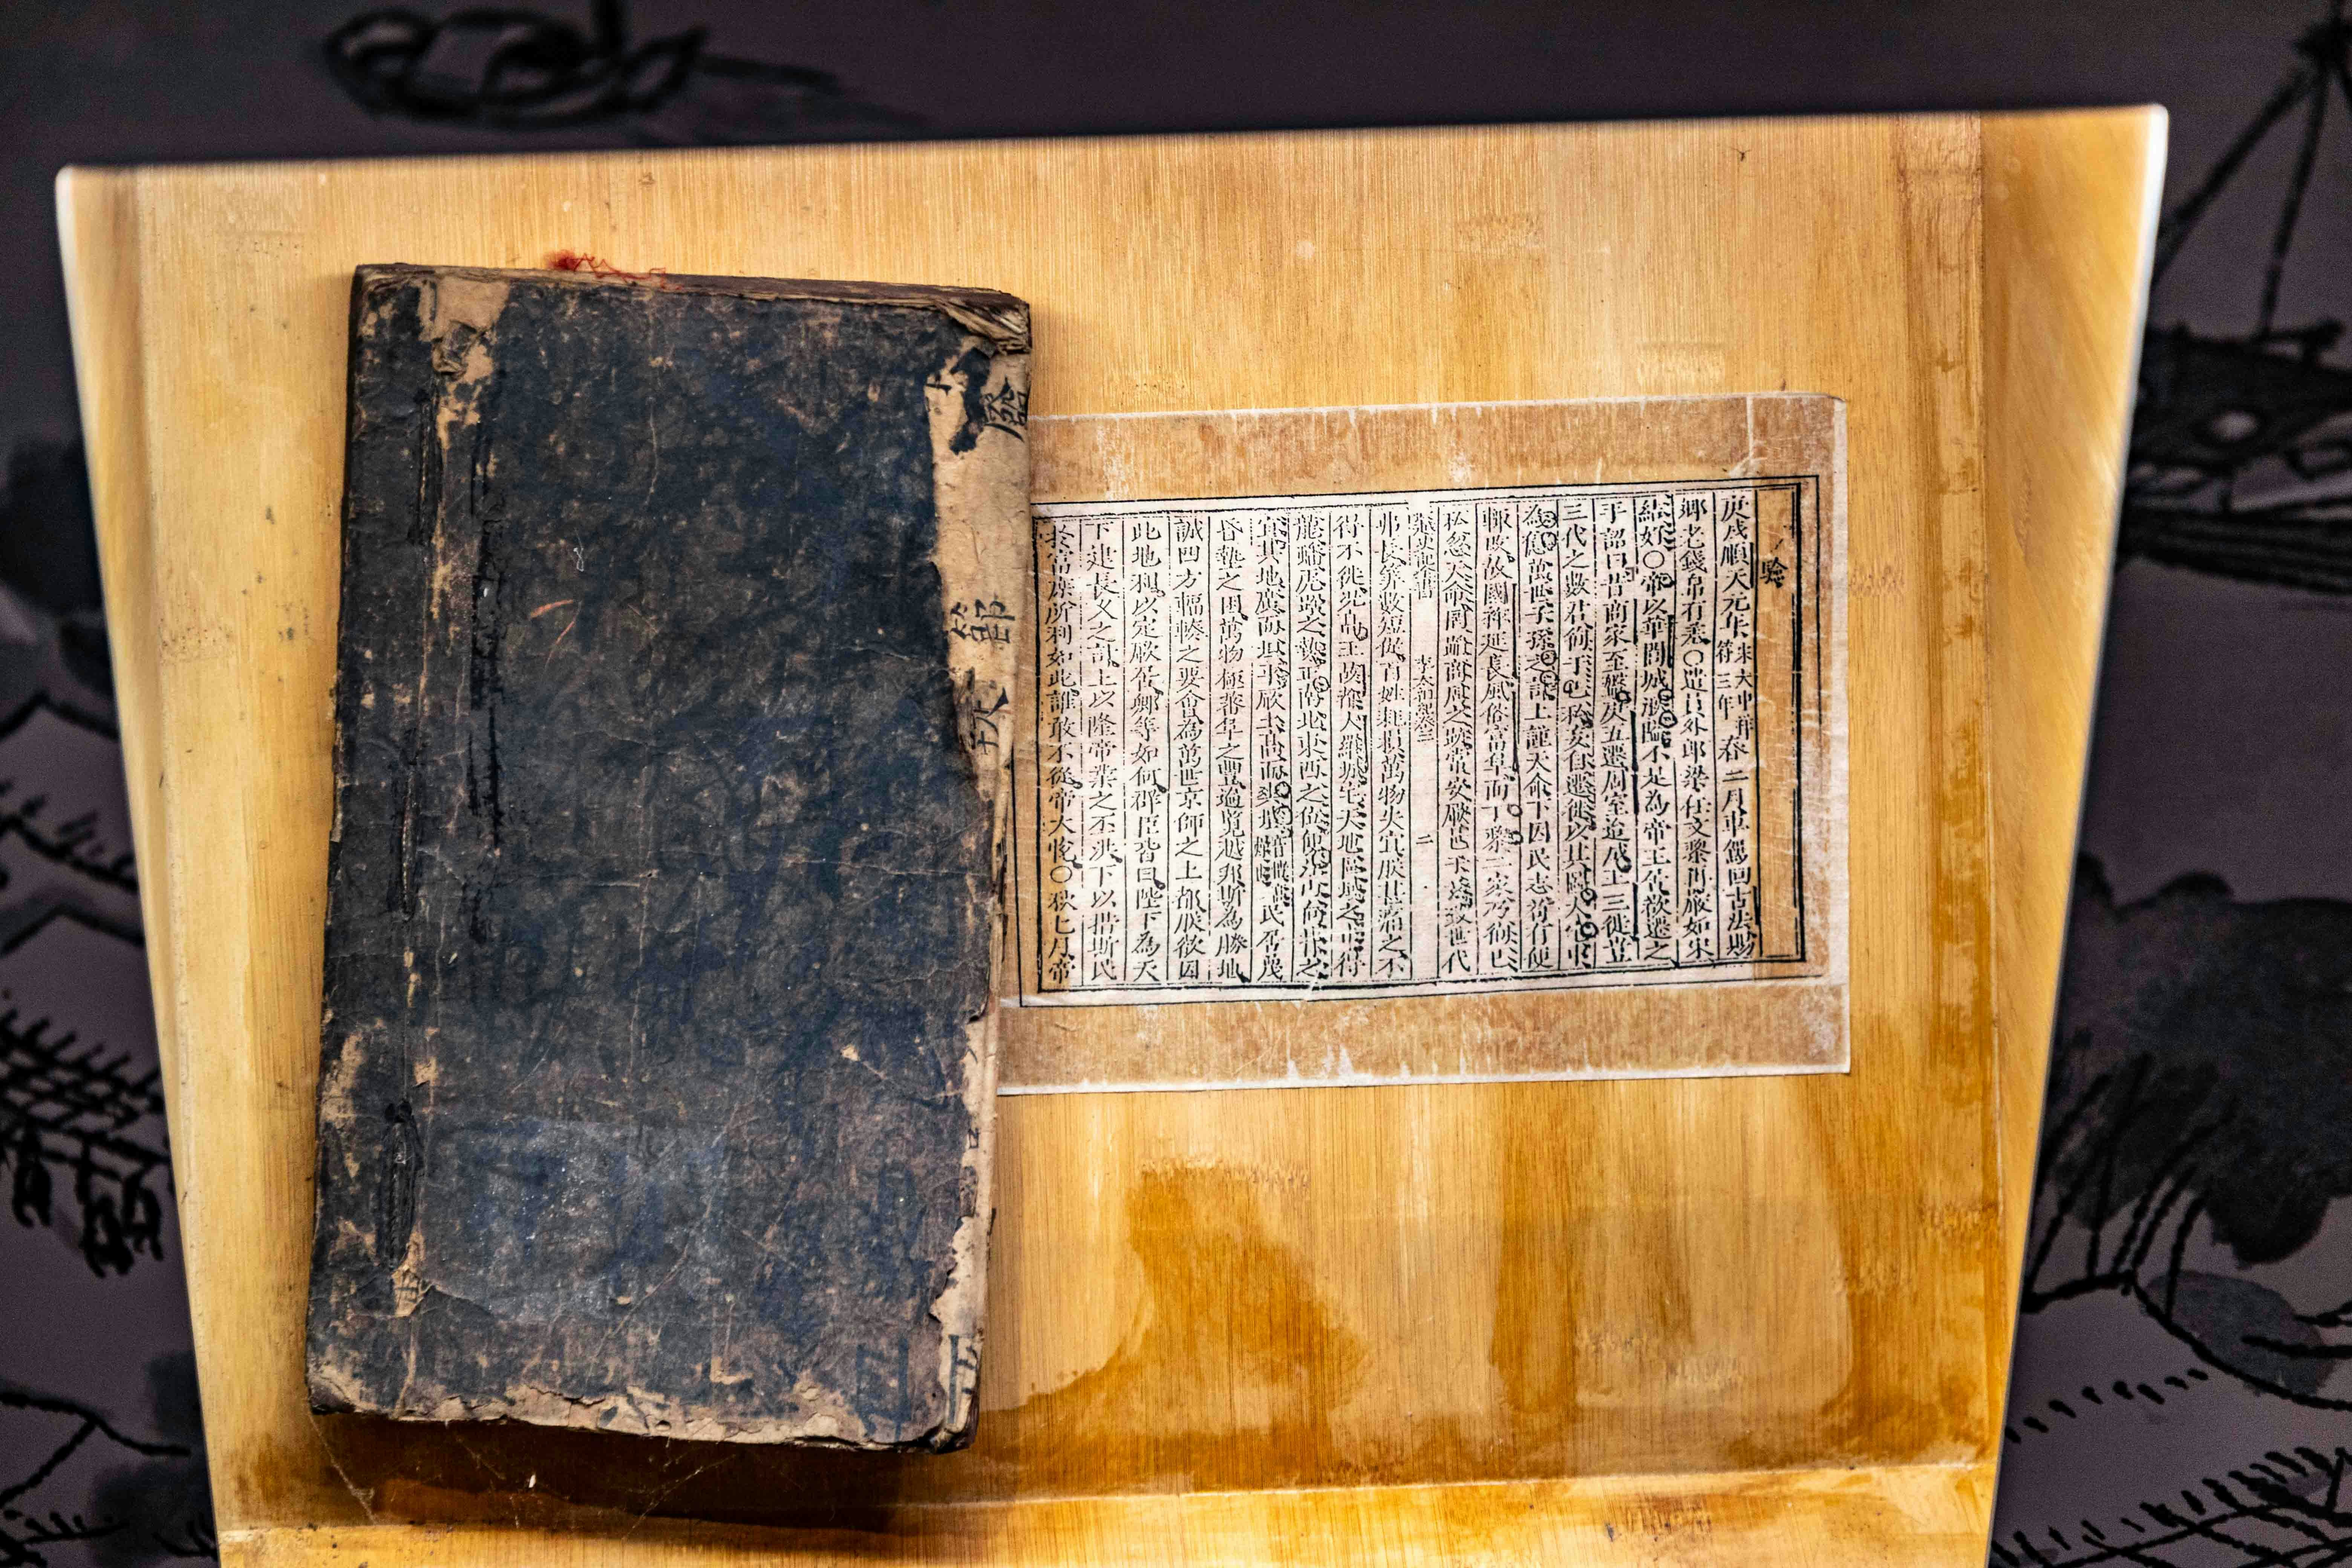 庚戌順天元年宋大中祥符三年春二月車駕回古法賜
鄉老錢帛有差○遣員外郎梁任文黎再嚴如宋
結好○帝以華閭城湫隘不足為帝王居欲遷之
手詔曰昔商家至盤庚五遷周室迨成王三徙豈
三代之數君徇于己私妄自遷徙以其圖大宅中
為億萬世子孫之計上謹天命下因民志苟有便
輒改故國祚延長風俗富阜而丁黎二家乃徇己
私忽天命罔蹈商周之跡常安厥邑于茲致世代
越史記全書 李太祖紀卷之二 二
弗長算數短促百姓耗損萬物失宜朕甚痛之不
得不徙况高王故都大羅城宅天地區域之中得
龍蟠虎踞之勢正南北東西之位便江山向背之
宜其地廣而坦平厥土高而爽塏民居蔑
昏墊之困萬物極蕃阜之豐遍覽越邦斯為勝地
誠四方輻輳之要會為萬世京師之上都朕欲因
此地利以定厥居卿等如何群臣皆曰陛下為天
下建長久之計上以隆帝業之丕洪下以措斯民
於富庶所利如此誰敢不從帝大悅○秋七月帝